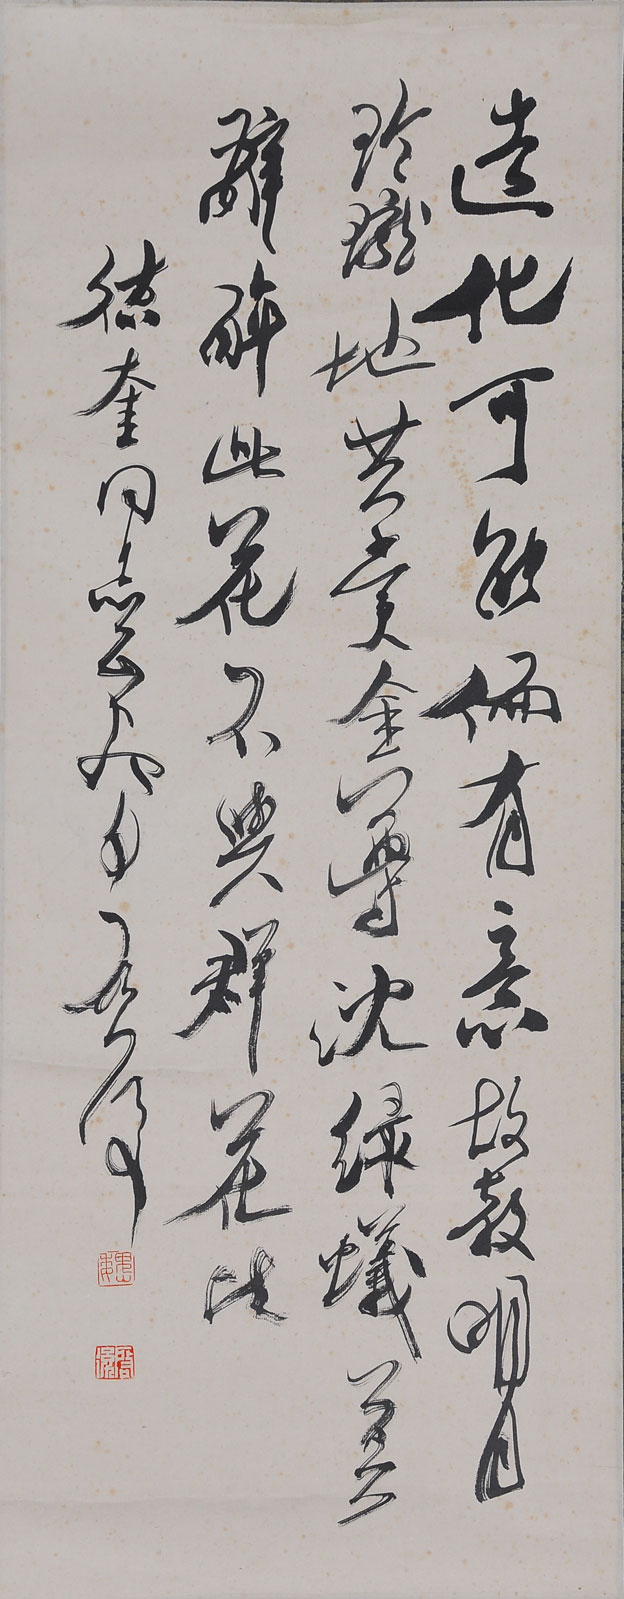 造化可能偏有意故教明月
玲瓏地共賞金尊沈綠蟻莫
辭醉此花不與群花比
德奎同志正